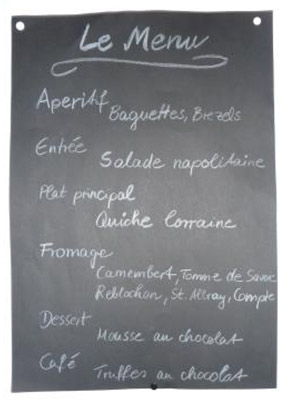 Le Menu
Aperitif
Baguettes, Brezels
Entrée
Salade napolitaine
Plat principal
Quiche Lorraine
Fromage
Camembert, Tomme de Savoie
Reblochon, St. Albray, Compte
Dessert
Mousse au chocolat
Café
Truffes au chocolat